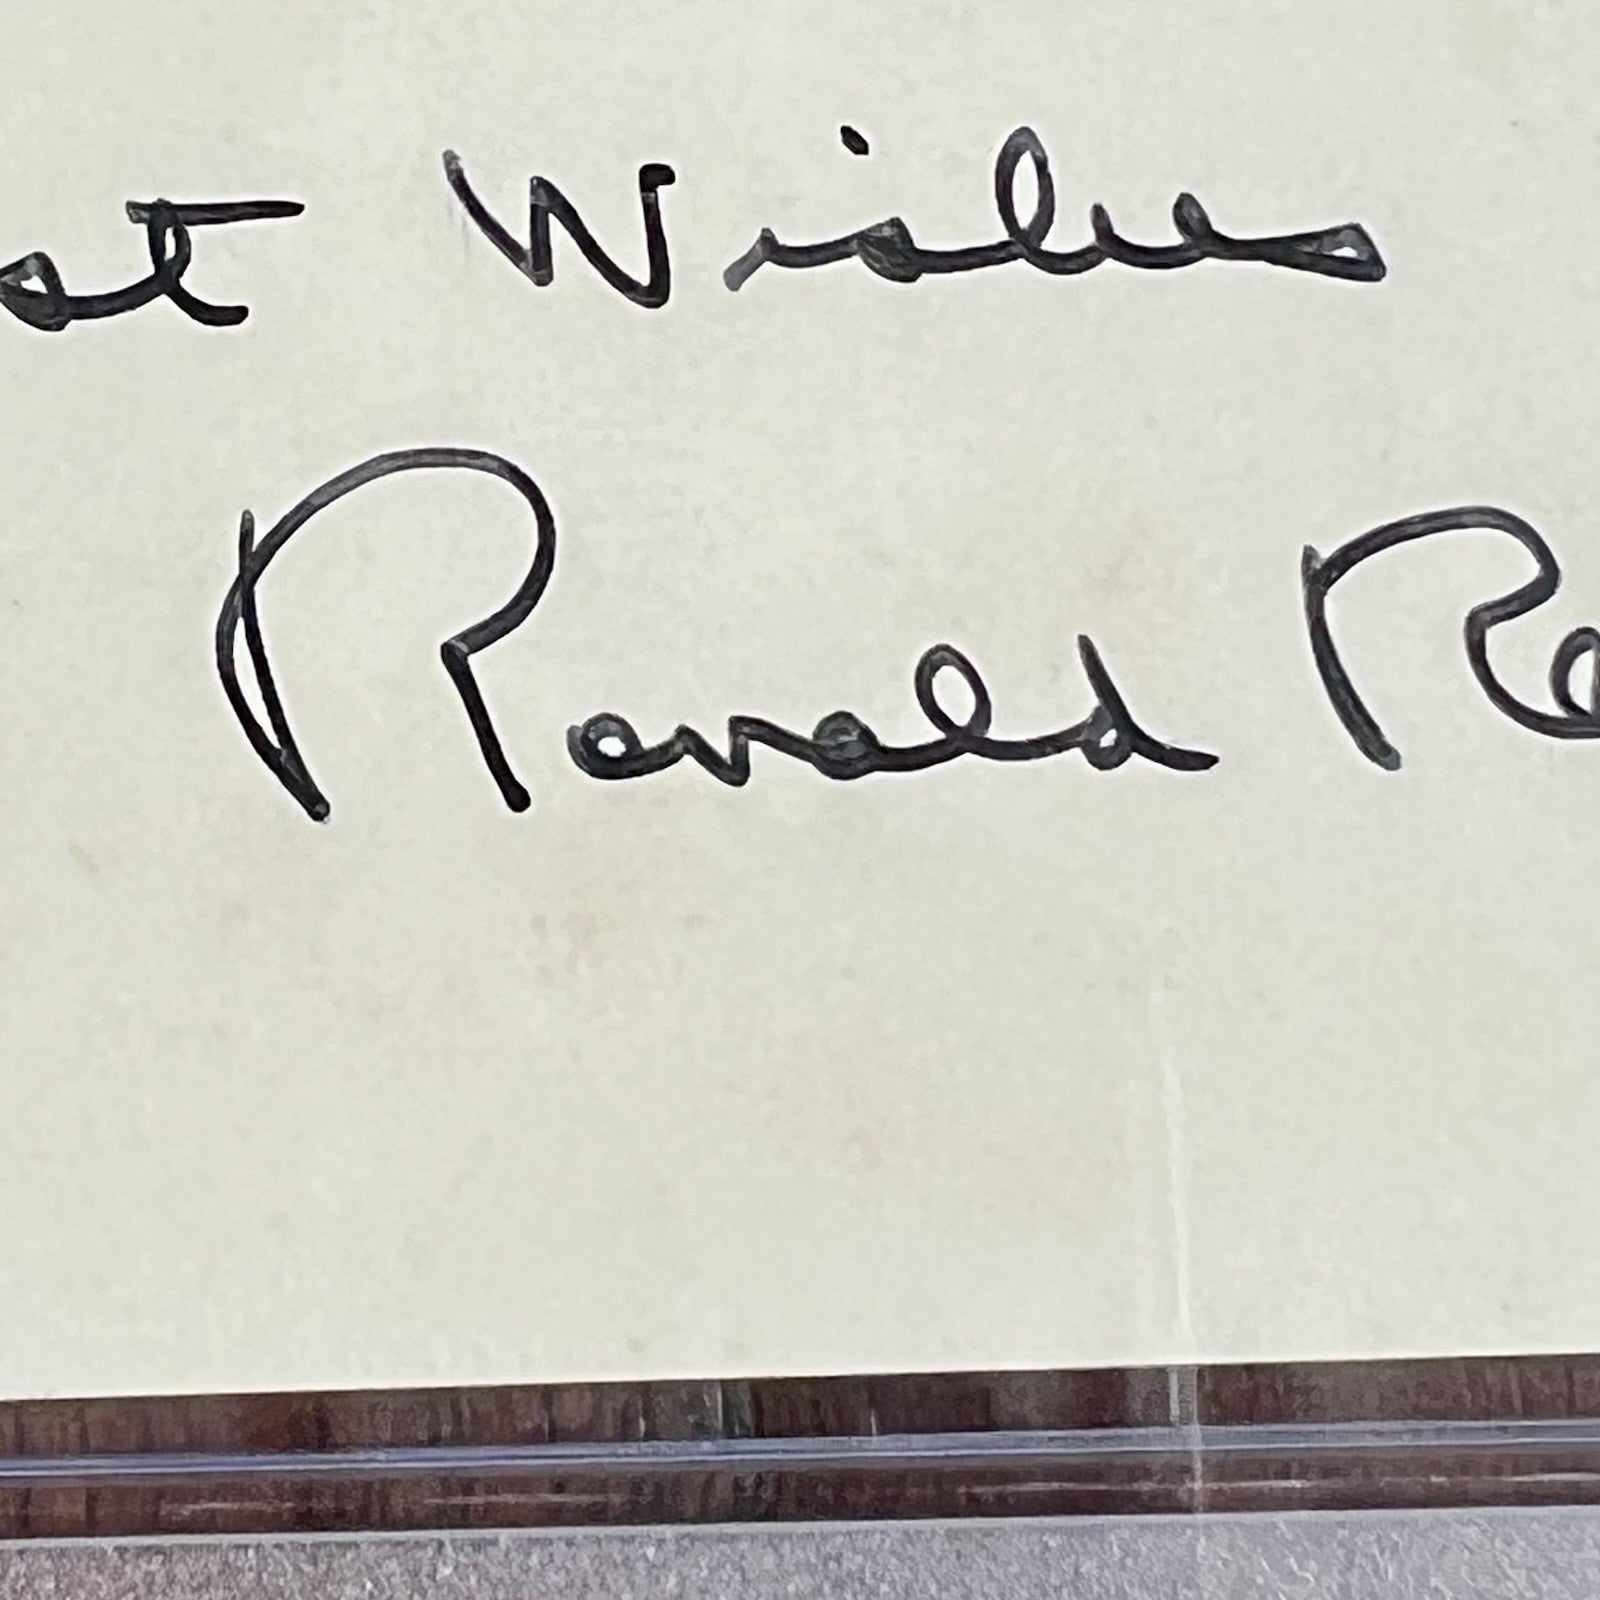 st Wishes
Ronald Re